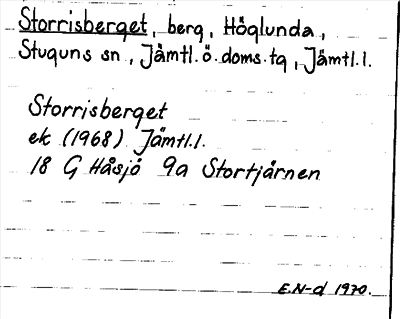 Storrisberget, berg, Höglunda,
Stuguns sn, Jämtl.ö.doms.tg, Jämtl.l.
Storrisberget
ek (1968) Jämtl.l.
18 G Håsjö 9a Stortjärnen
E.N-d 1970.